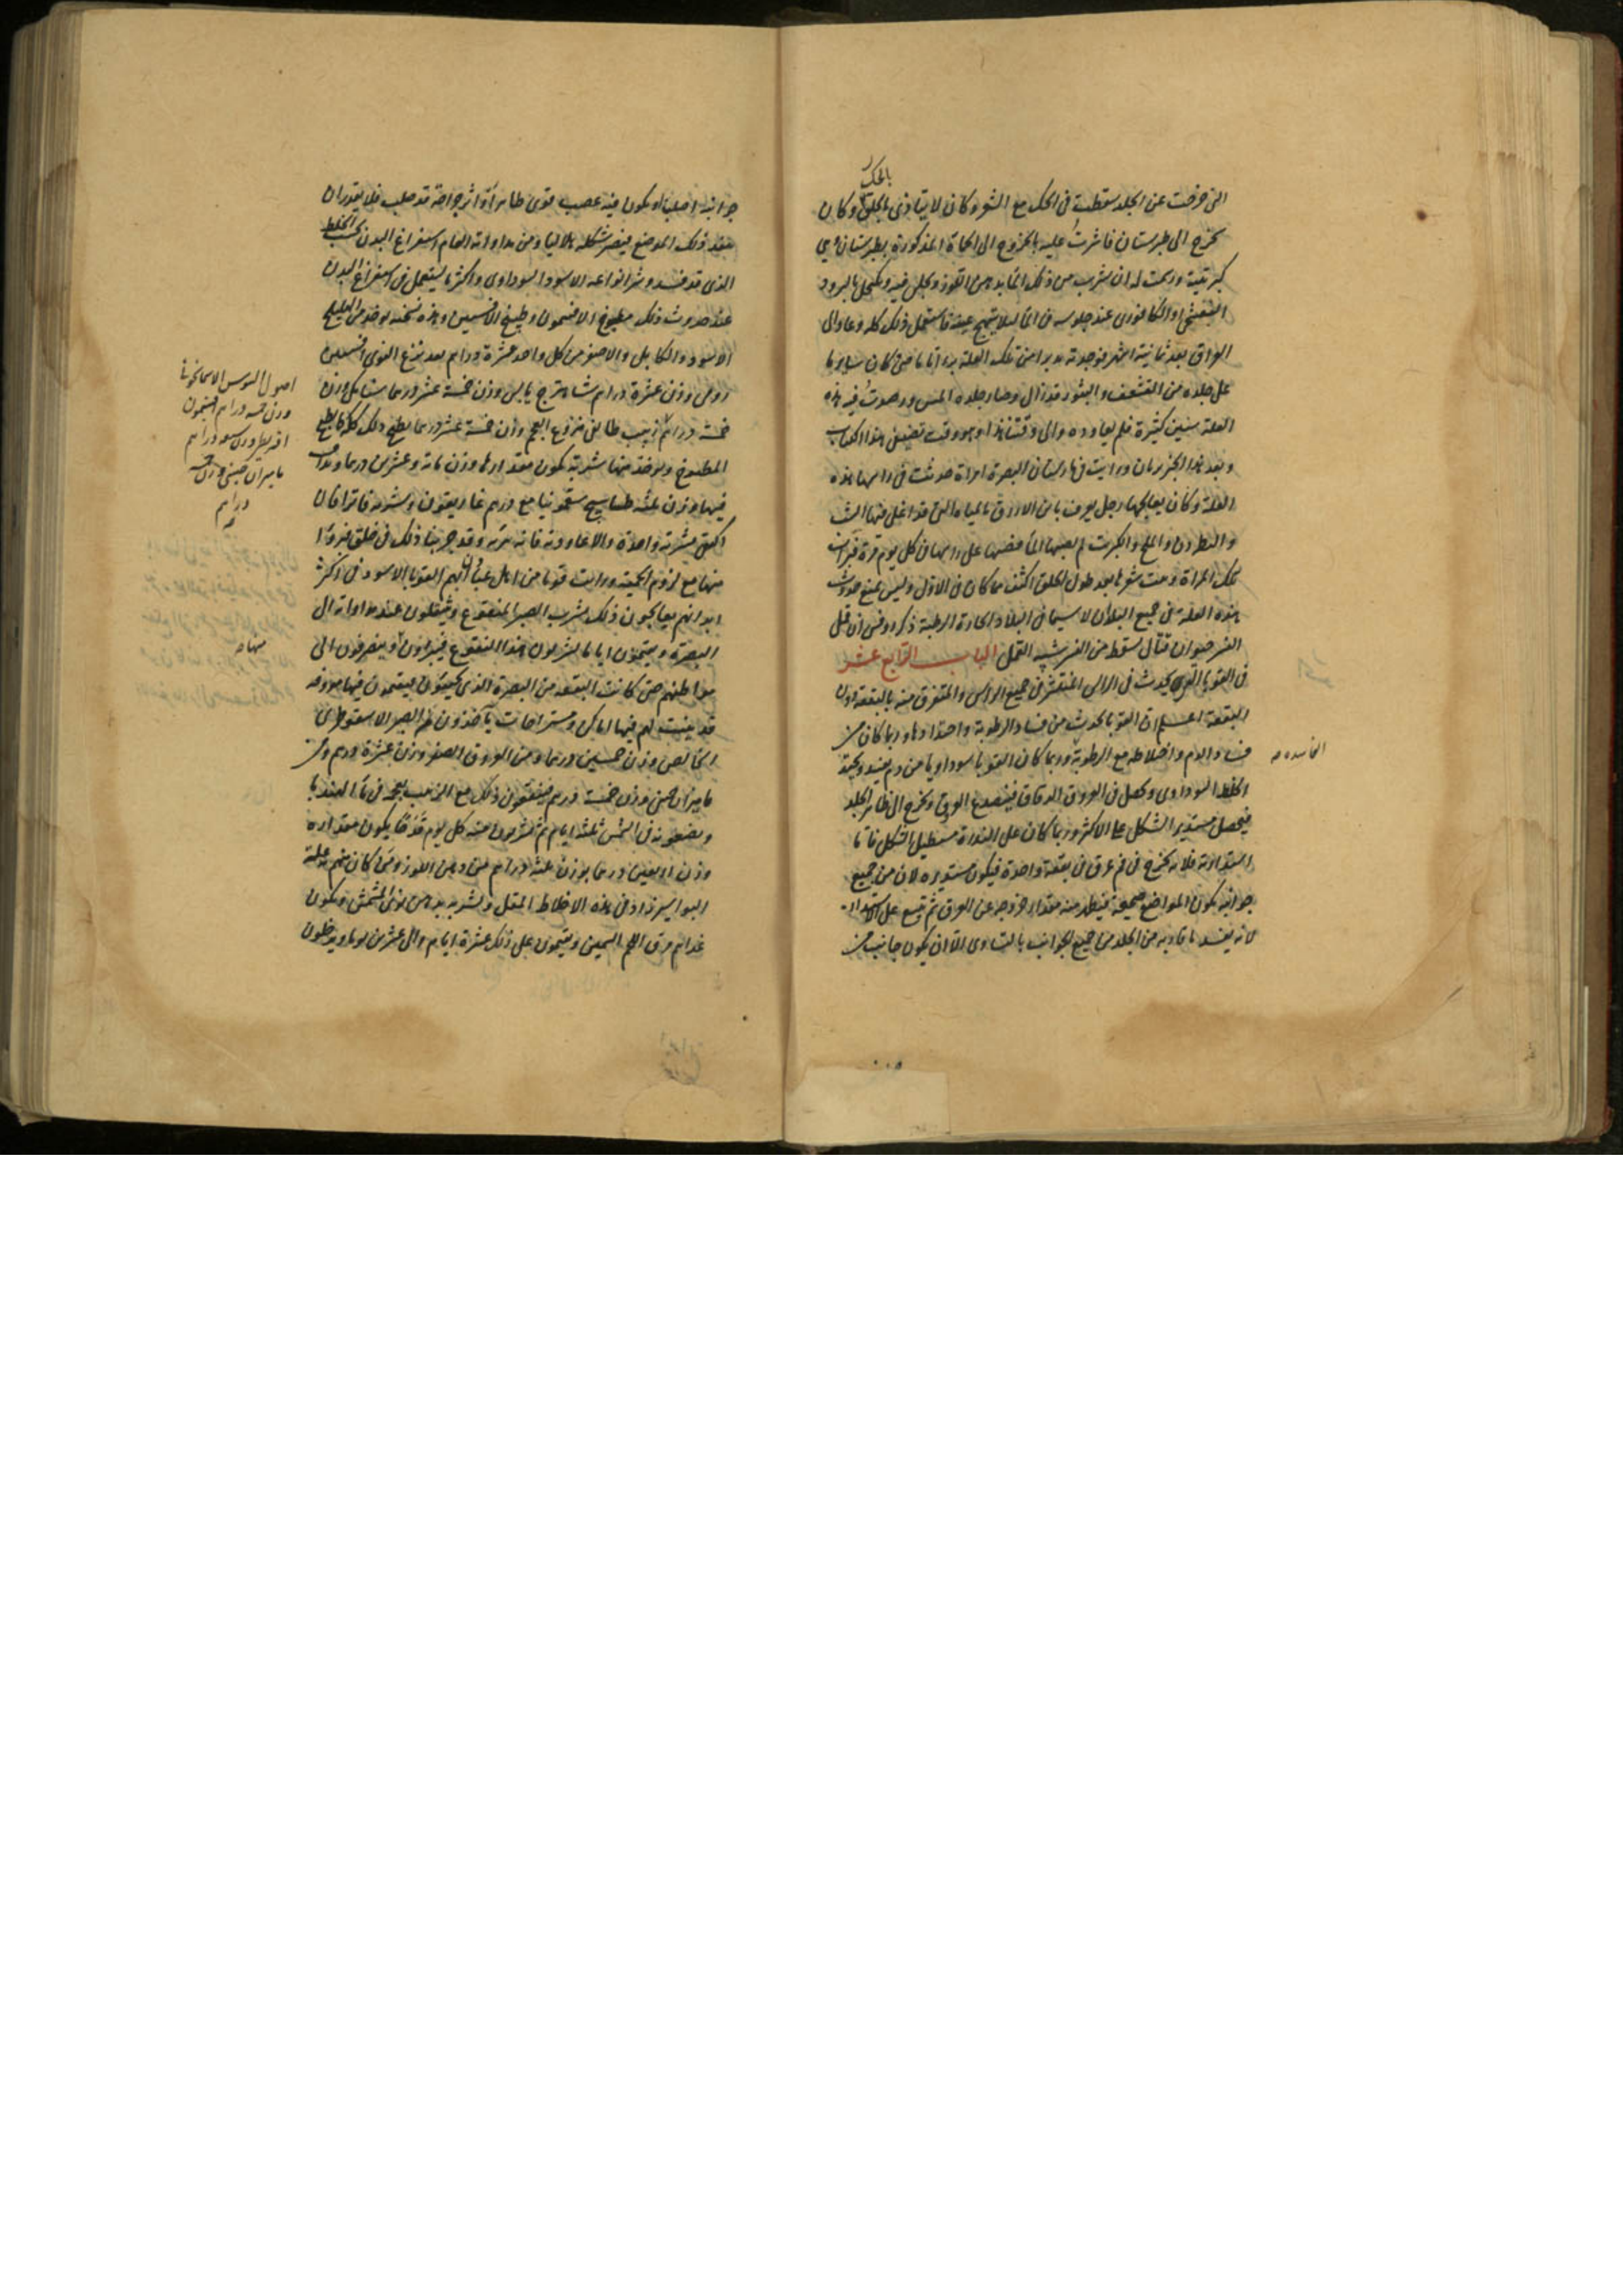 بالحك
التى خرجت عن الجلد سقطت فى الحك مع الشعر وكان لا يتاذى بالحلق وكان
يخرج الى طبرستان فاشرت عليه بالخروج الى الحمات المذكورة بطبرستان وهي
كبريتية ورسمت له ان يشرب من ذلك الماء بدهن اللوز ويجلس فيه ويكتحل بالبرود
البنفسجى او الكافورى عند جلوسه فى الماء ليلا يتهيج عينه فاستعمل ذلك كله وعاد الى
العراق بعد ثمانية اشهر فوجدته قد برا من تلك العلة برءا تاما حتى كان ساير ما
على جلده من التقشف والبثور قد زال وصار جلده املس ورصدت فيه هذه
العلة سنين كثيرة فلم يعاوده والى وقتنا هذا وهو وقت تصنيفى هذا الكتاب
وبعد هذا الخبر بان ورايت فى مارستان البصرة امراة حدثت فى راسها هذه
العلة وكان يعالجها رجل يعرف بابن الازرق بالمياه التى قد اغلى فيها الشب
والنطرون والملح والكبريت ثم يصب هذا الماء على راسها فى كل يوم مرة فبرات
تلك المراة ونبت شعرها بعد طول الحلق اكثف مما كان فى الاول وليس يمتنع حدوث
هذه العلة فى جميع البلدان لا سيما فى البلاد الحارة الرطبة ذكر روفس ان قمل
النسر حيوان قتال يسقط من النسر شبيه القمل الباب الرابع عشر
فى القوبا التى يحدث فى الراس المنتشر فى جميع الراس والمتفرق منه بالبقعة دون
البقعة اعلم ان القوبا يحدث من فساد الرطوبة واحتدادها وربما كان من
فساد الدم واختلاطه مع الرطوبة وربما كان القوبا سوداويا من دم يفسد ويحتد
الفاسده صح
الخلط السوداوى ويحصل فى العروق الدقاق فينصدع العروق ويخرج الى ظاهر الجلد
فيحصل مستدير الشكل على الاكثر وربما كان على الندرة مستطيل الشكل فاما
استدارته فلانه يخرج فى فم عرق فى بقعة واحدة فيكون مستديره لان من جميع
جوانبه يكون المواضع صحيحة فيظهر منه مقدار خروجه عن العرق ثم يتسع على الاستدارة
لانه يفسد ما قاربه من الجلد من جميع الجوانب بالتساوى الا ان يكون جانب من
جوانبه اصلب او يكون فيه عصب قوى ظاهر او اثر جراحة قد صلب فلا يقدر ان
يفسد ذلك الموضع فيصير شكله هلاليا ومن مداواته العام استفراغ البدن بحسب الخلط
الذى قد فسد وشر انواعه الاسود السوداوى واكثر ما يستعمل فى استفراغ البدن
عند حدوث ذلك مطبوخ الافتيمون وطبيخ الافسنتين وهذه نسخته يوخذ من الهليلج
الاسود والكابلى والاصفر من كل واحد عشرة دراهم بعد نزع النوى افسنتين
رومى وزن عشرة دراهم شاهترج يابس وزن خمسة عشر درهما سنا مكى وزن
خمسة دراهم زبيب طايفى منزوع العجم وزن خمسة عشر درهما يطبخ ذلك كله كما يطبخ
المطبوخ ويوخذ منها شربة يكون مقدارها وزن مائة وعشرين درهما ويذاف
فيها وزن ثلثه طساسيج سقمونيا مع درهم غاريقون ويشربه فاترا فان
اكتفى بشربة واحدة والا عاودته فانه يبرئه وقد جربنا ذلك فى خلق فبروا
منها مع لزوم الحمية ورايت قوما من اهل عبادان بهم القوبا الاسود فى اكثر
ابدانهم يعالجون ذلك بشرب الصبر المنقوع وينتقلون عند مداواته الى
البصرة ويقيمون اياما يشربون هذا النقوع فيبراون وينصرفون الى
مواطنهم حتى كانت البقعة من البصرة الذى يجيئون يقيمون فيها معروفه
قد بنيت لهم فيها اماكن ومستراحات ياخذون لهم الصبر الاسقوطرى
الخالص وزن خمسين درهما ومن العروق الصفر وزن عشرة دراهم ومن
ماميران صينى وزن خمسة دراهم فينقعون ذلك مع الزبيب بعجمه فى ماء الهندبا
ويضعونه فى الشمس ثلثة ايام ثم يشربون منه كل يوم قدحا يكون مقداره
وزن اربعين درهما بوزن ثلثة دراهم من دهن اللوز ومتى كان منهم به علة
البواسير زاد فى هذه الاخلاط المقل ويشربه بدهن نوى المشمش ويكون
غداهم مرق اللحم السمين ويقيمون على ذلك عشرة ايام والى عشرين يوما ويدخلون
اصول السوس الاسمانجونى
وزن خمسه دراهم افتيمون
اقريطى وزن سبعه دراهم
ماميران صينى وزن خمسه
دراهم
صح